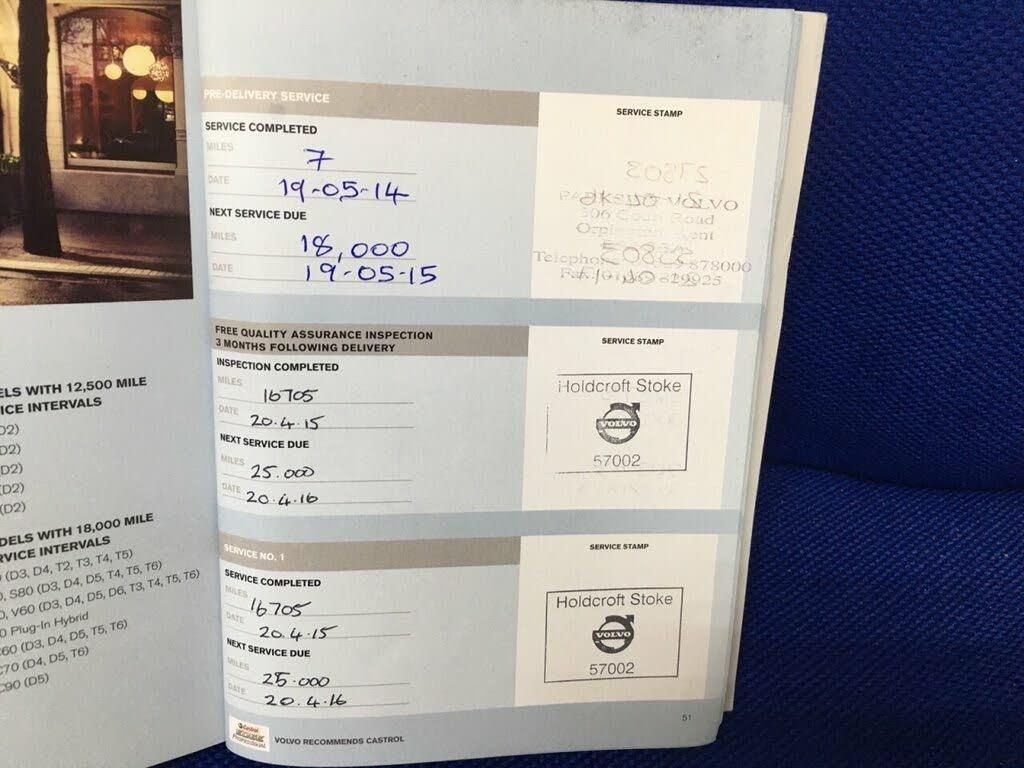 PRE-DELIVERY SERVICE
SERVICE COMPLETED
MILES 7
DATE 19-05-14
NEXT SERVICE DUE
MILES 18,000
DATE 19-05-15
SERVICE STAMP
VOLVO
306 Road
Orpington Kent
878000
FREE QUALITY ASSURANCE INSPECTION
3 MONTHS FOLLOWING DELIVERY
INSPECTION COMPLETED
MILES 16705
DATE 20.4.15
NEXT SERVICE DUE
MILES 25.000
DATE 20.4.16
SERVICE STAMP
Holdcroft Stoke
VOLVO
57002
SERVICE NO. 1
SERVICE COMPLETED
MILES 16705
DATE 20.4.15
NEXT SERVICE DUE
MILES 25.000
DATE 20.4.16
SERVICE STAMP
Holdcroft Stoke
VOLVO
57002
51
Castrol
Professional
VOLVO RECOMMENDS CASTROL
ELS WITH 12,500 MILE
ICE INTERVALS
D2)
D2)
(D2)
(D2)
(D2)
DELS WITH 18,000 MILE
RVICE INTERVALS
(D3, D4, T2, T3, T4, T5)
, S80 (D3, D4, D5, T4, T5, T6)
, V60 (D3, D4, D5, D6, T3, T4, T5, T6)
0 Plug-In Hybrid
C60 (D3, D4, D5, T5, T6)
C70 (D4, D5, T6)
C90 (D5)